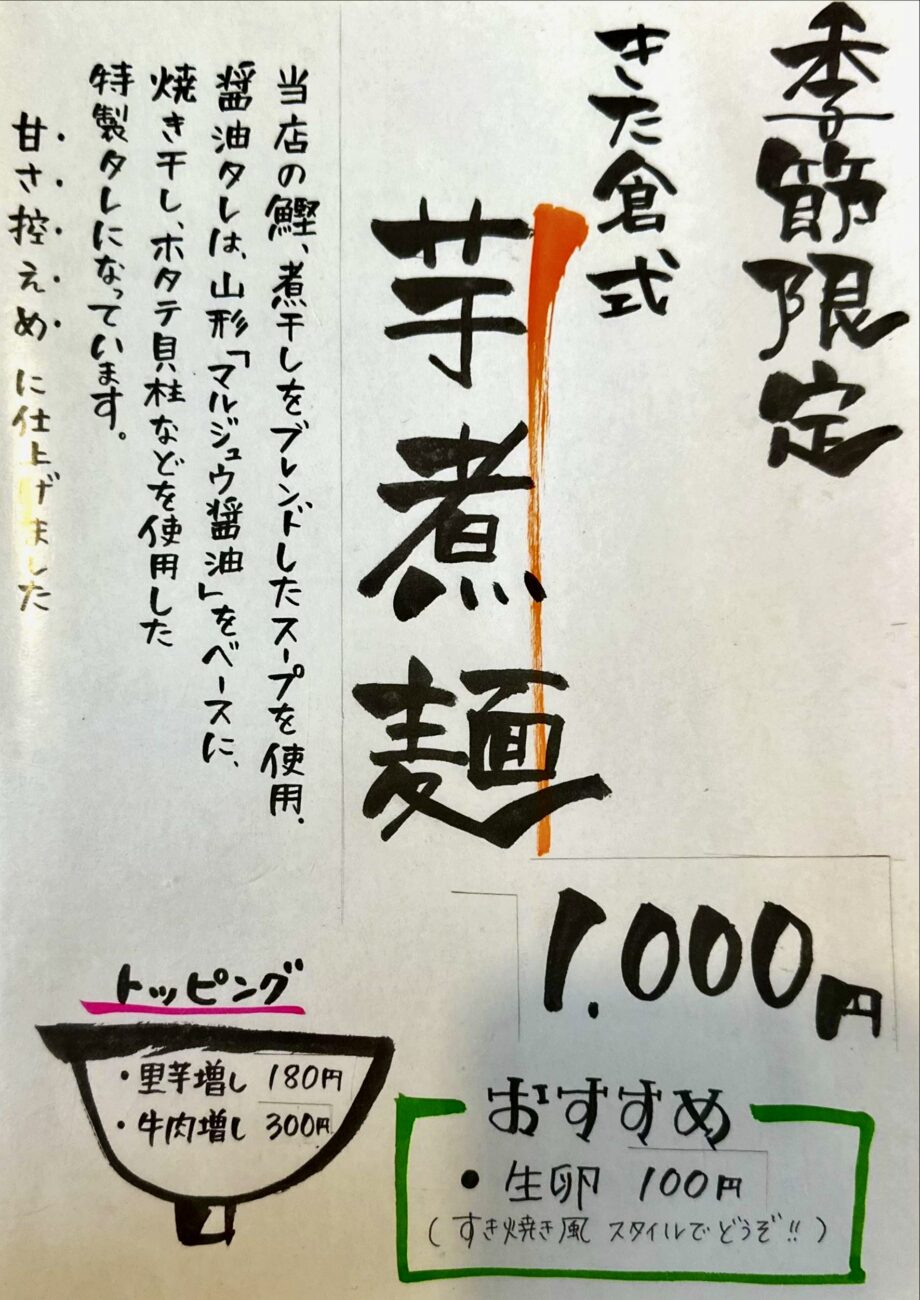 季節限定
きた倉式
芋煮麺
1.000円
当店の鰹、煮干しをブレンドしたスープを使用.
醤油タレは、山形「マルジュウ醤油」をベースに、
焼き干し、ホタテ貝柱などを使用した
特製タレになっています。
甘さ控えめに仕上げました
トッピング
・里芋増し 180円
・牛肉増し 300円
おすすめ
● 生卵 100円
(すき焼き風 スタイルでどうぞ!!)